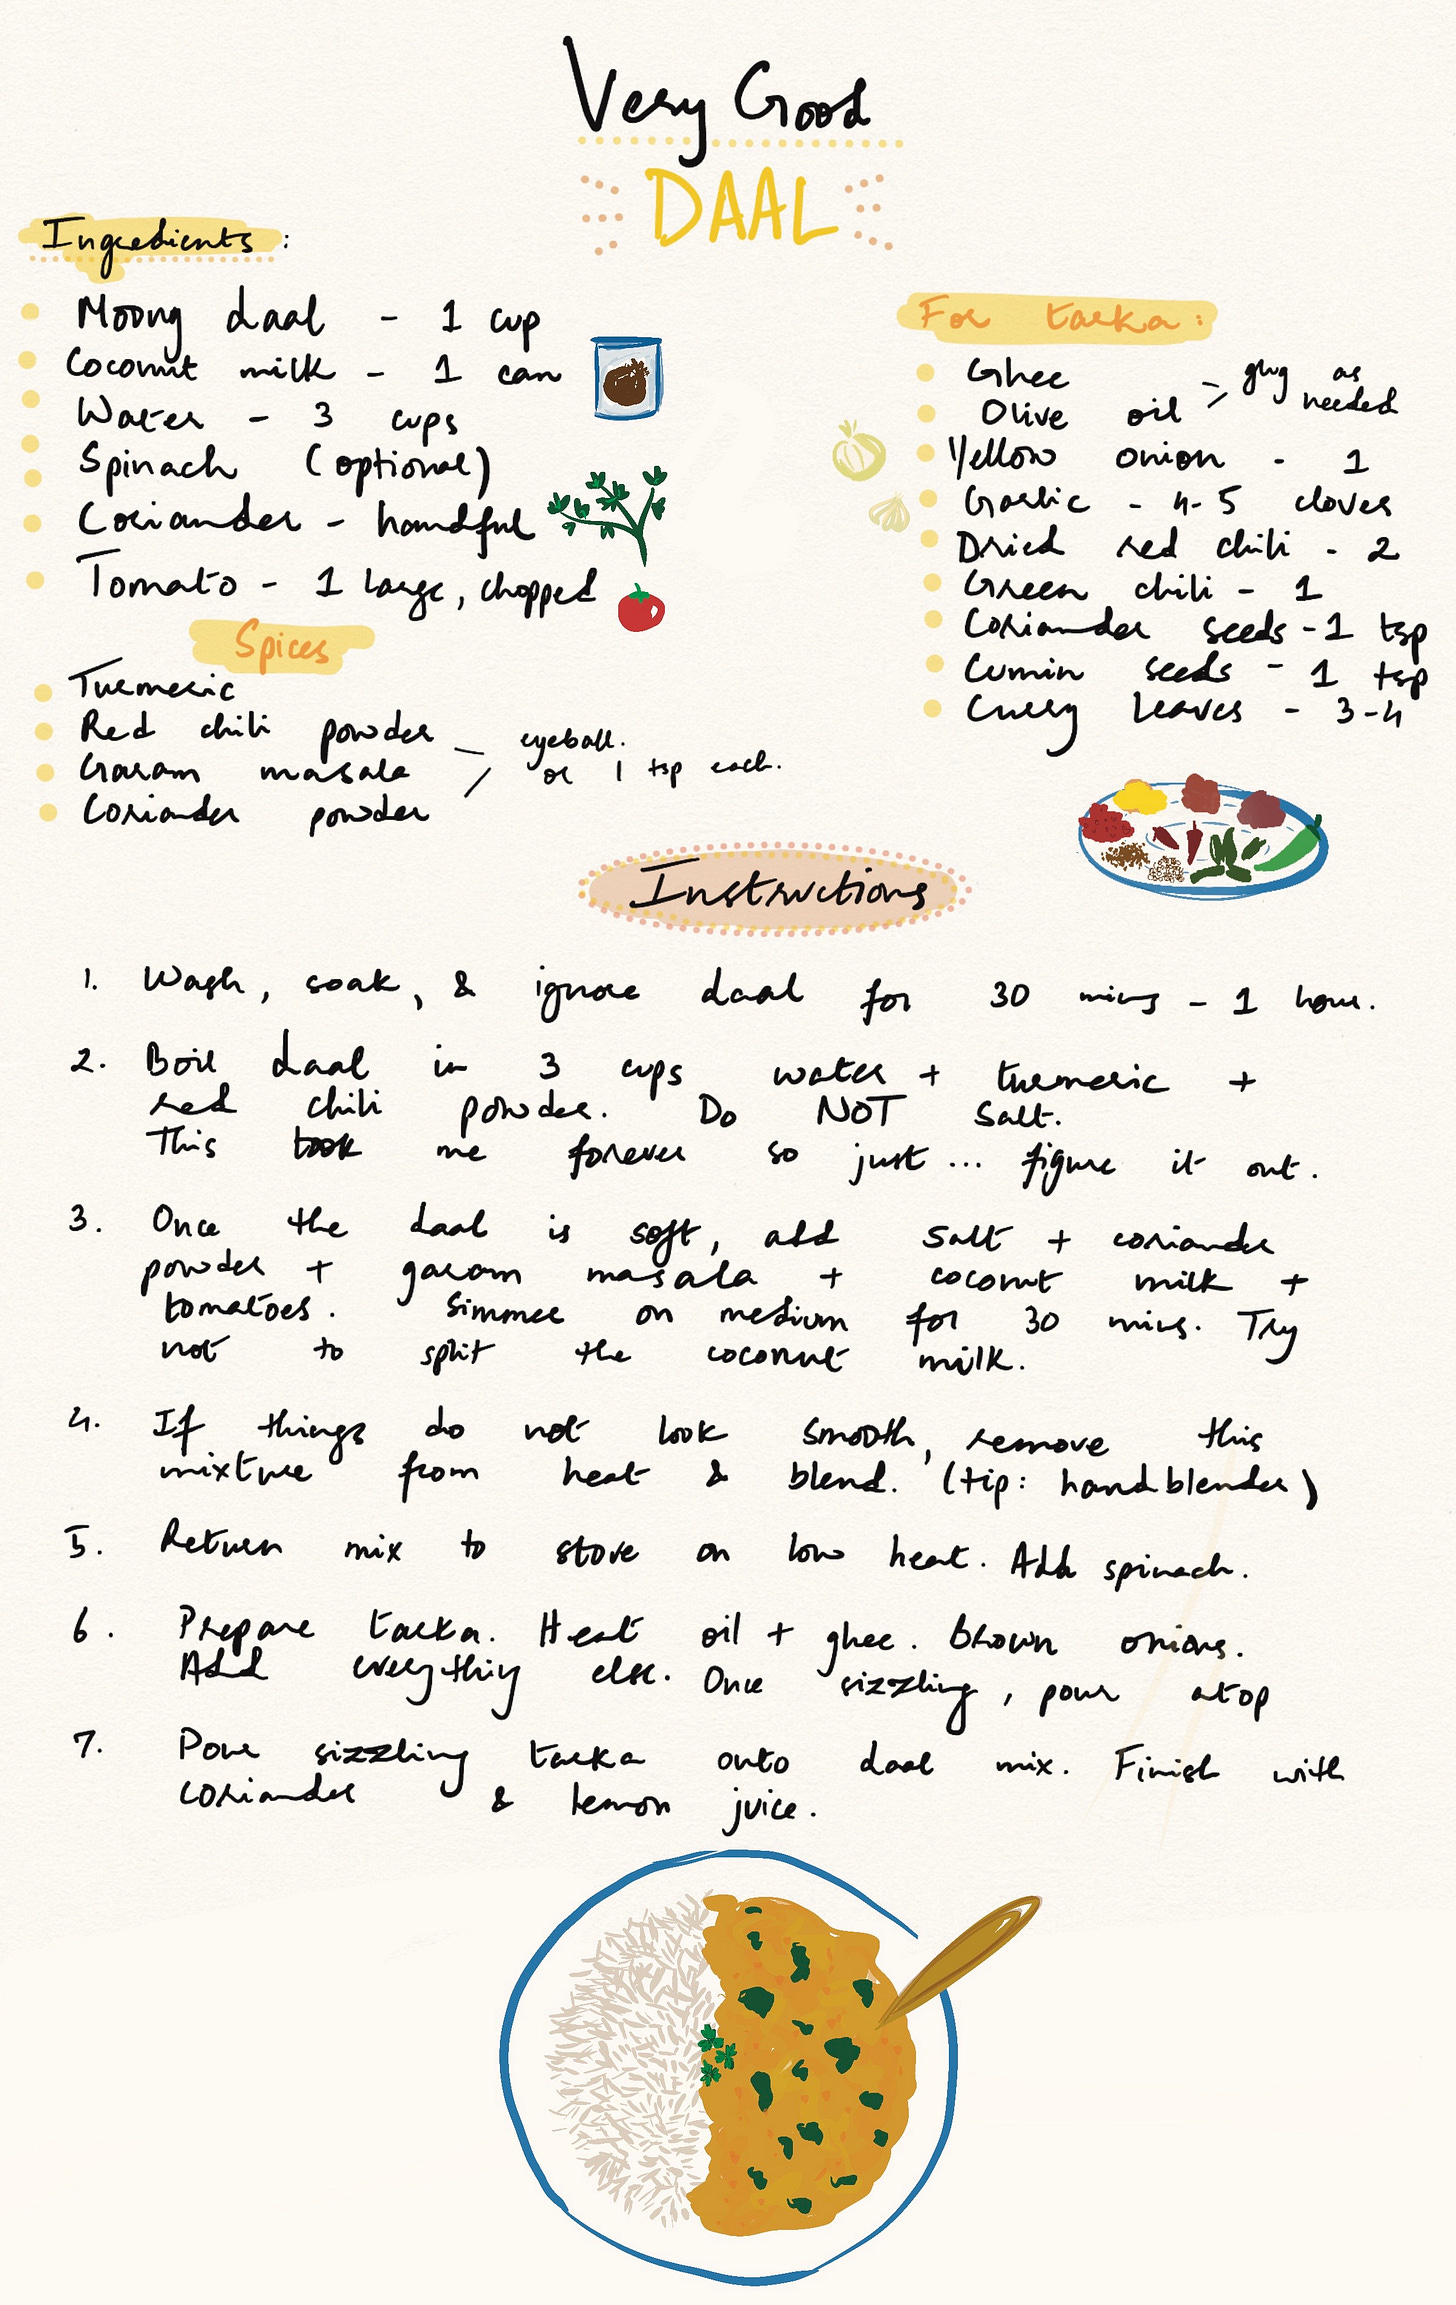 Very Good
DAAL
Ingredients:
Moong daal - 1 cup
Coconut milk - 1 can
Water - 3 cups
Spinach (optional)
Coriander - handful
Tomato - 1 large, chopped
Spices
Turmeric
Red chili powder
Garam masala
Coriander powder
eyeball.
or 1 tsp each.
For tarka:
Ghee
Olive oil
- glug as
needed
Yellow onion - 1
Garlic - 4-5 cloves
Dried red chili - 2
Green chili - 1
Coriander seeds - 1 tsp
Cumin seeds - 1 tsp
Curry leaves - 3-4
Instructions
1. Wash, soak, & ignore daal for 30 mins - 1 hour.
2. Boil daal in 3 cups water + turmeric +
red chili powder. Do NOT salt.
This took me forever so just ... figure it out.
3. Once the daal is soft, add salt + coriander
powder + garam masala + coconut milk +
tomatoes. Simmer on medium for 30 mins. Try
not to split the coconut milk.
4. If things do not look smooth, remove this
mixture from heat & blend. (tip: handblender)
5. Return mix to stove on low heat. Add spinach.
6. Prepare tarka. Heat oil + ghee. Brown onions.
Add everything else. Once sizzling, pour atop
7. Pour sizzling tarka onto daal mix. Finish with
coriander & lemon juice.